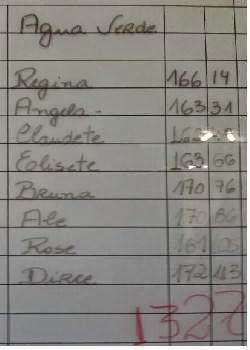 Agua Verde
Regina 166 14
Angela - 163 31
Claudete
Edisete 163 66
Bruna 170 76
Ale 170 86
Rose 161
Dirce 172
1327